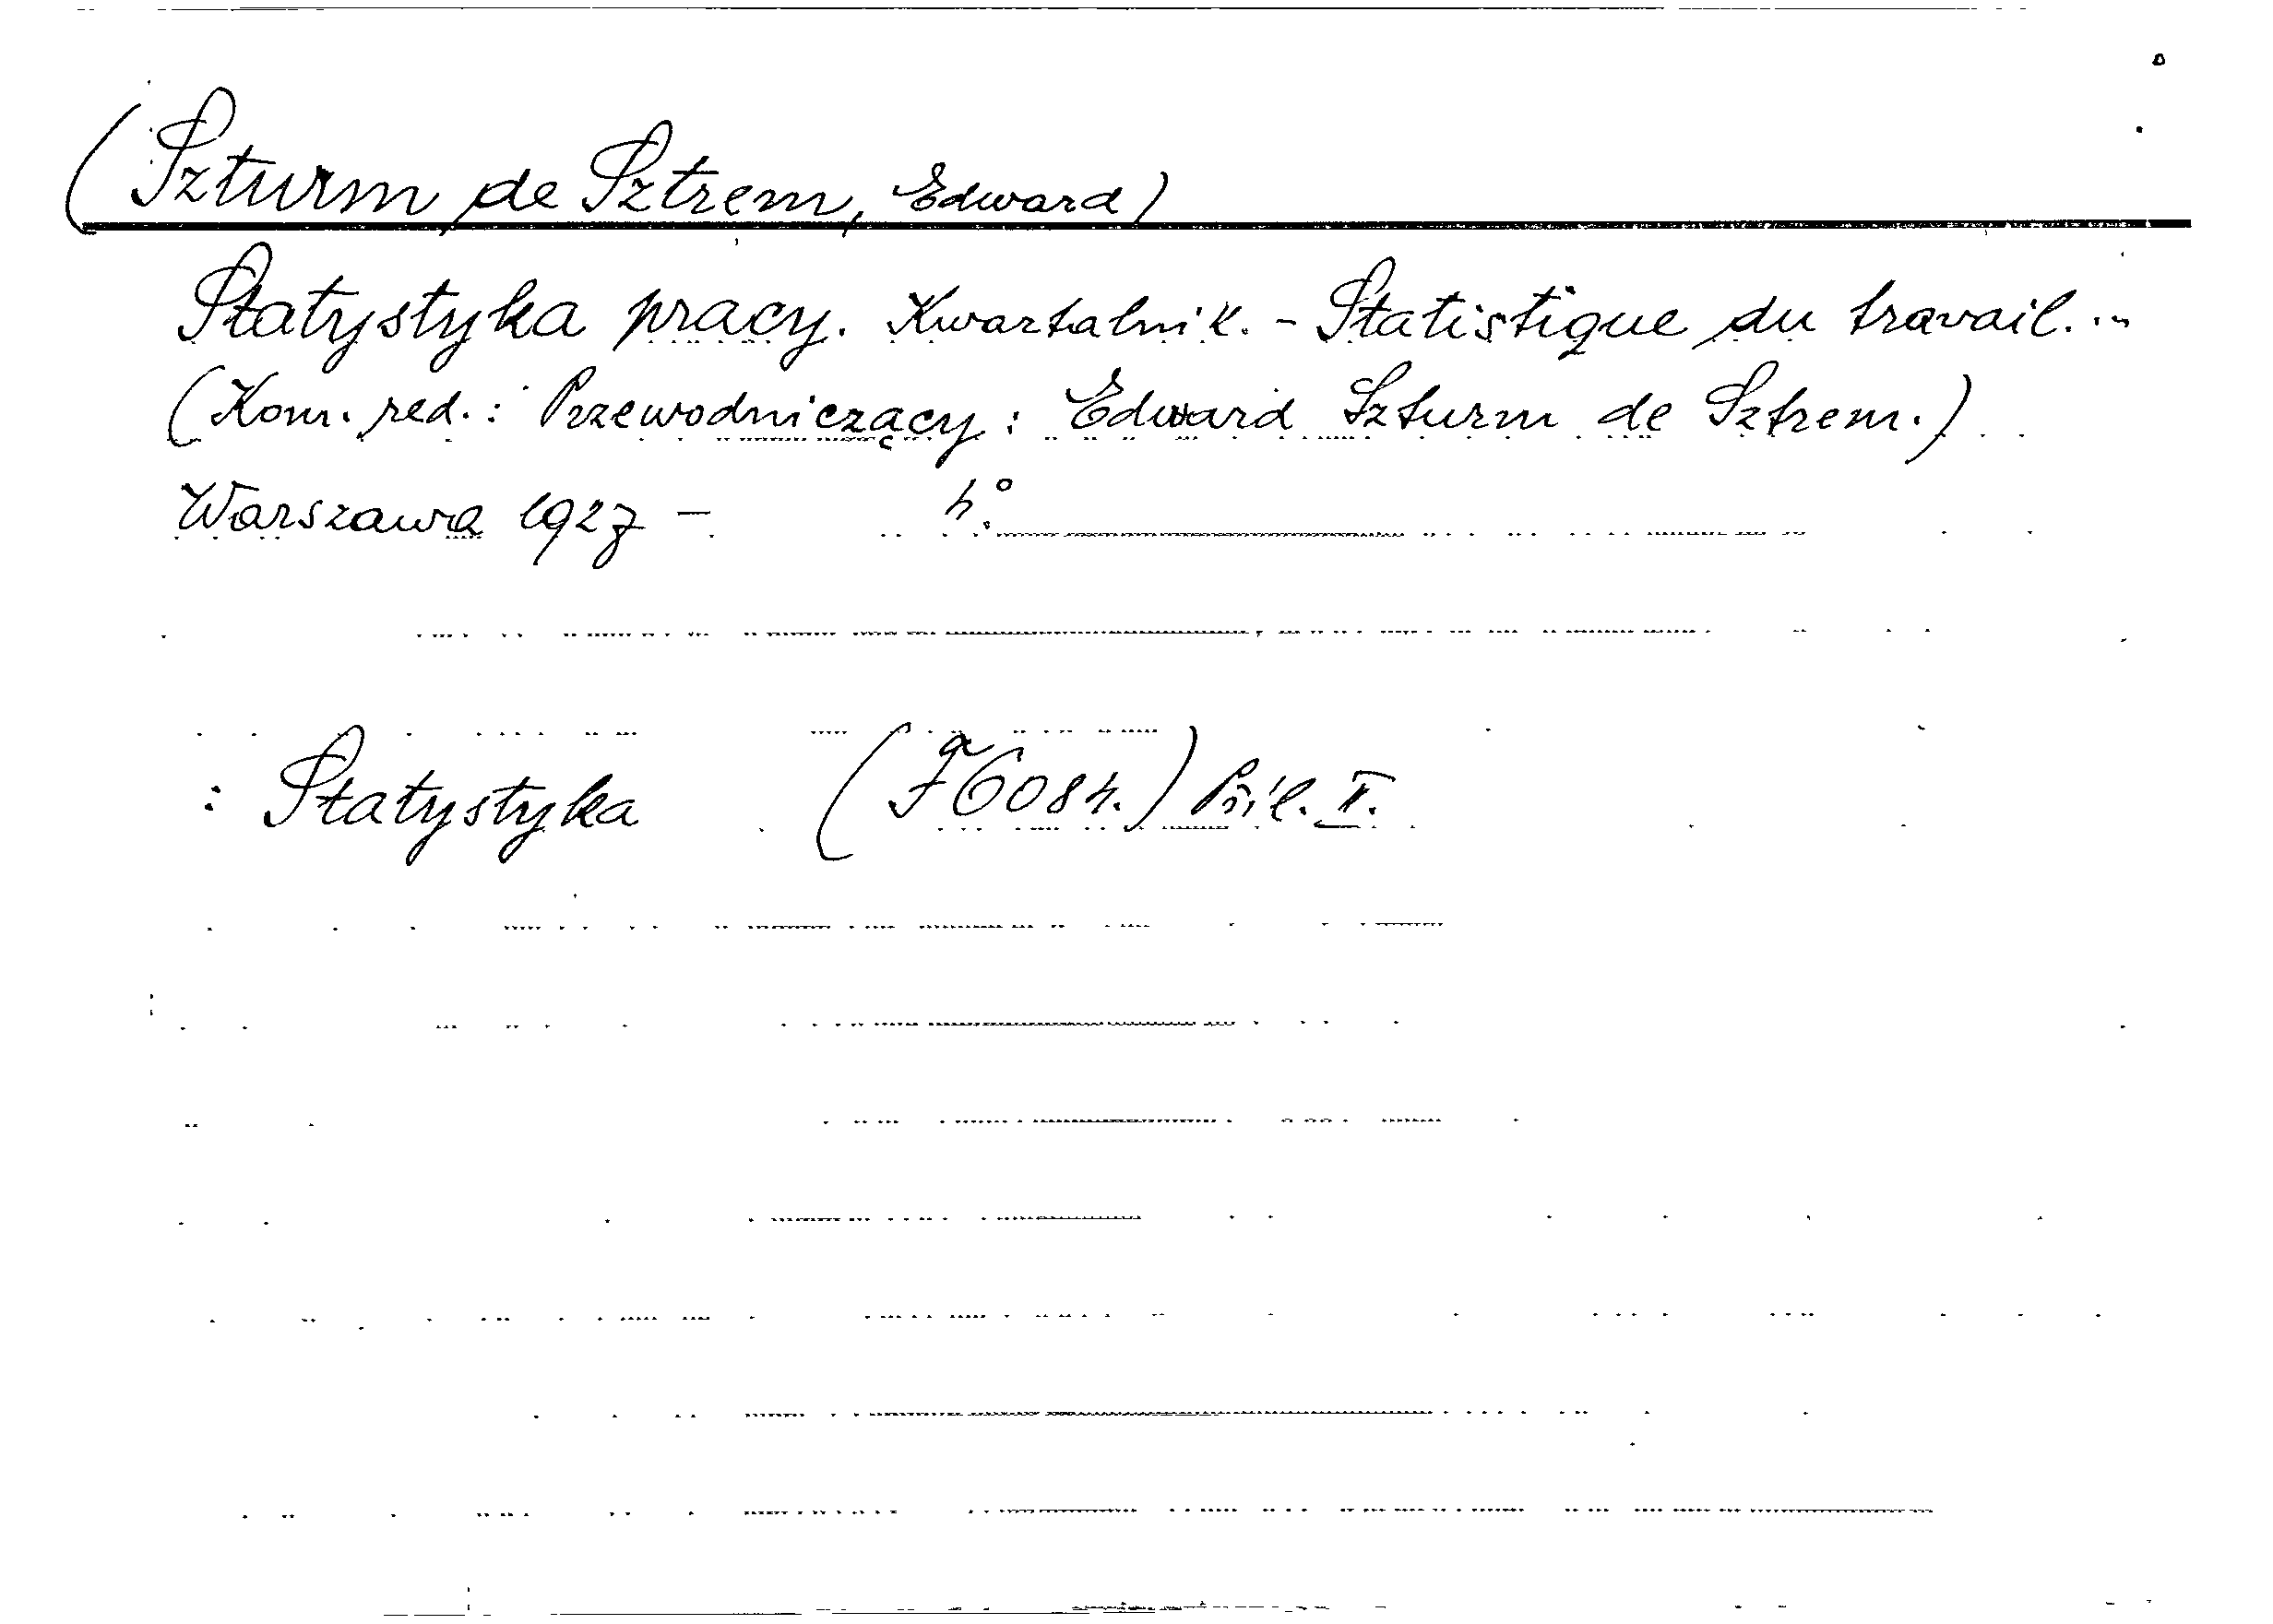 (Szturm de Sztrem, Edward)
Statystyka pracy. Kwartalnik. - Statistique du travail. ...
(Kom. red.: Przewodniczący: Edward Szturm de Sztrem.)
Warszawa 1927 - 4°.
: Statystyka (F 6084.) Příl. II.